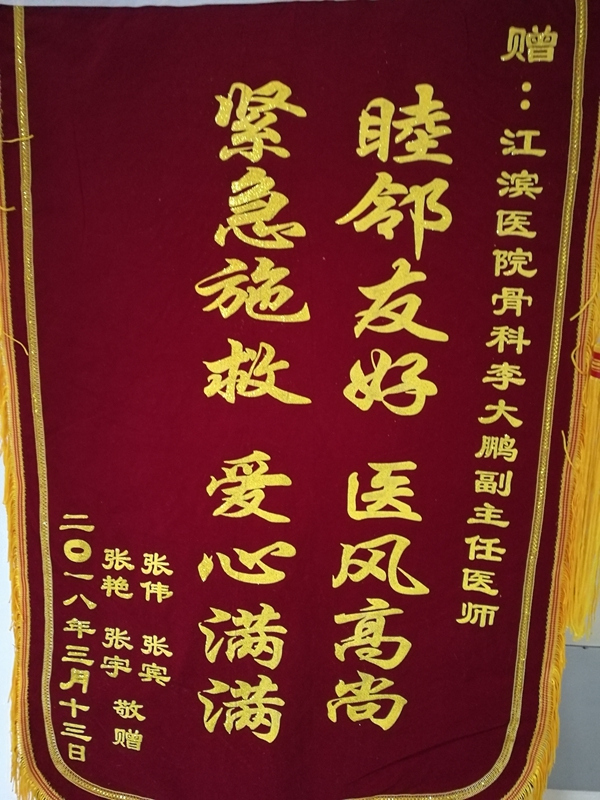 赠：江滨医院骨科李大鹏副主任医师
睦邻友好 医风高尚
紧急施救 爱心满满
张伟 张宾
张艳 张宇 敬赠
二〇一八年三月十三日